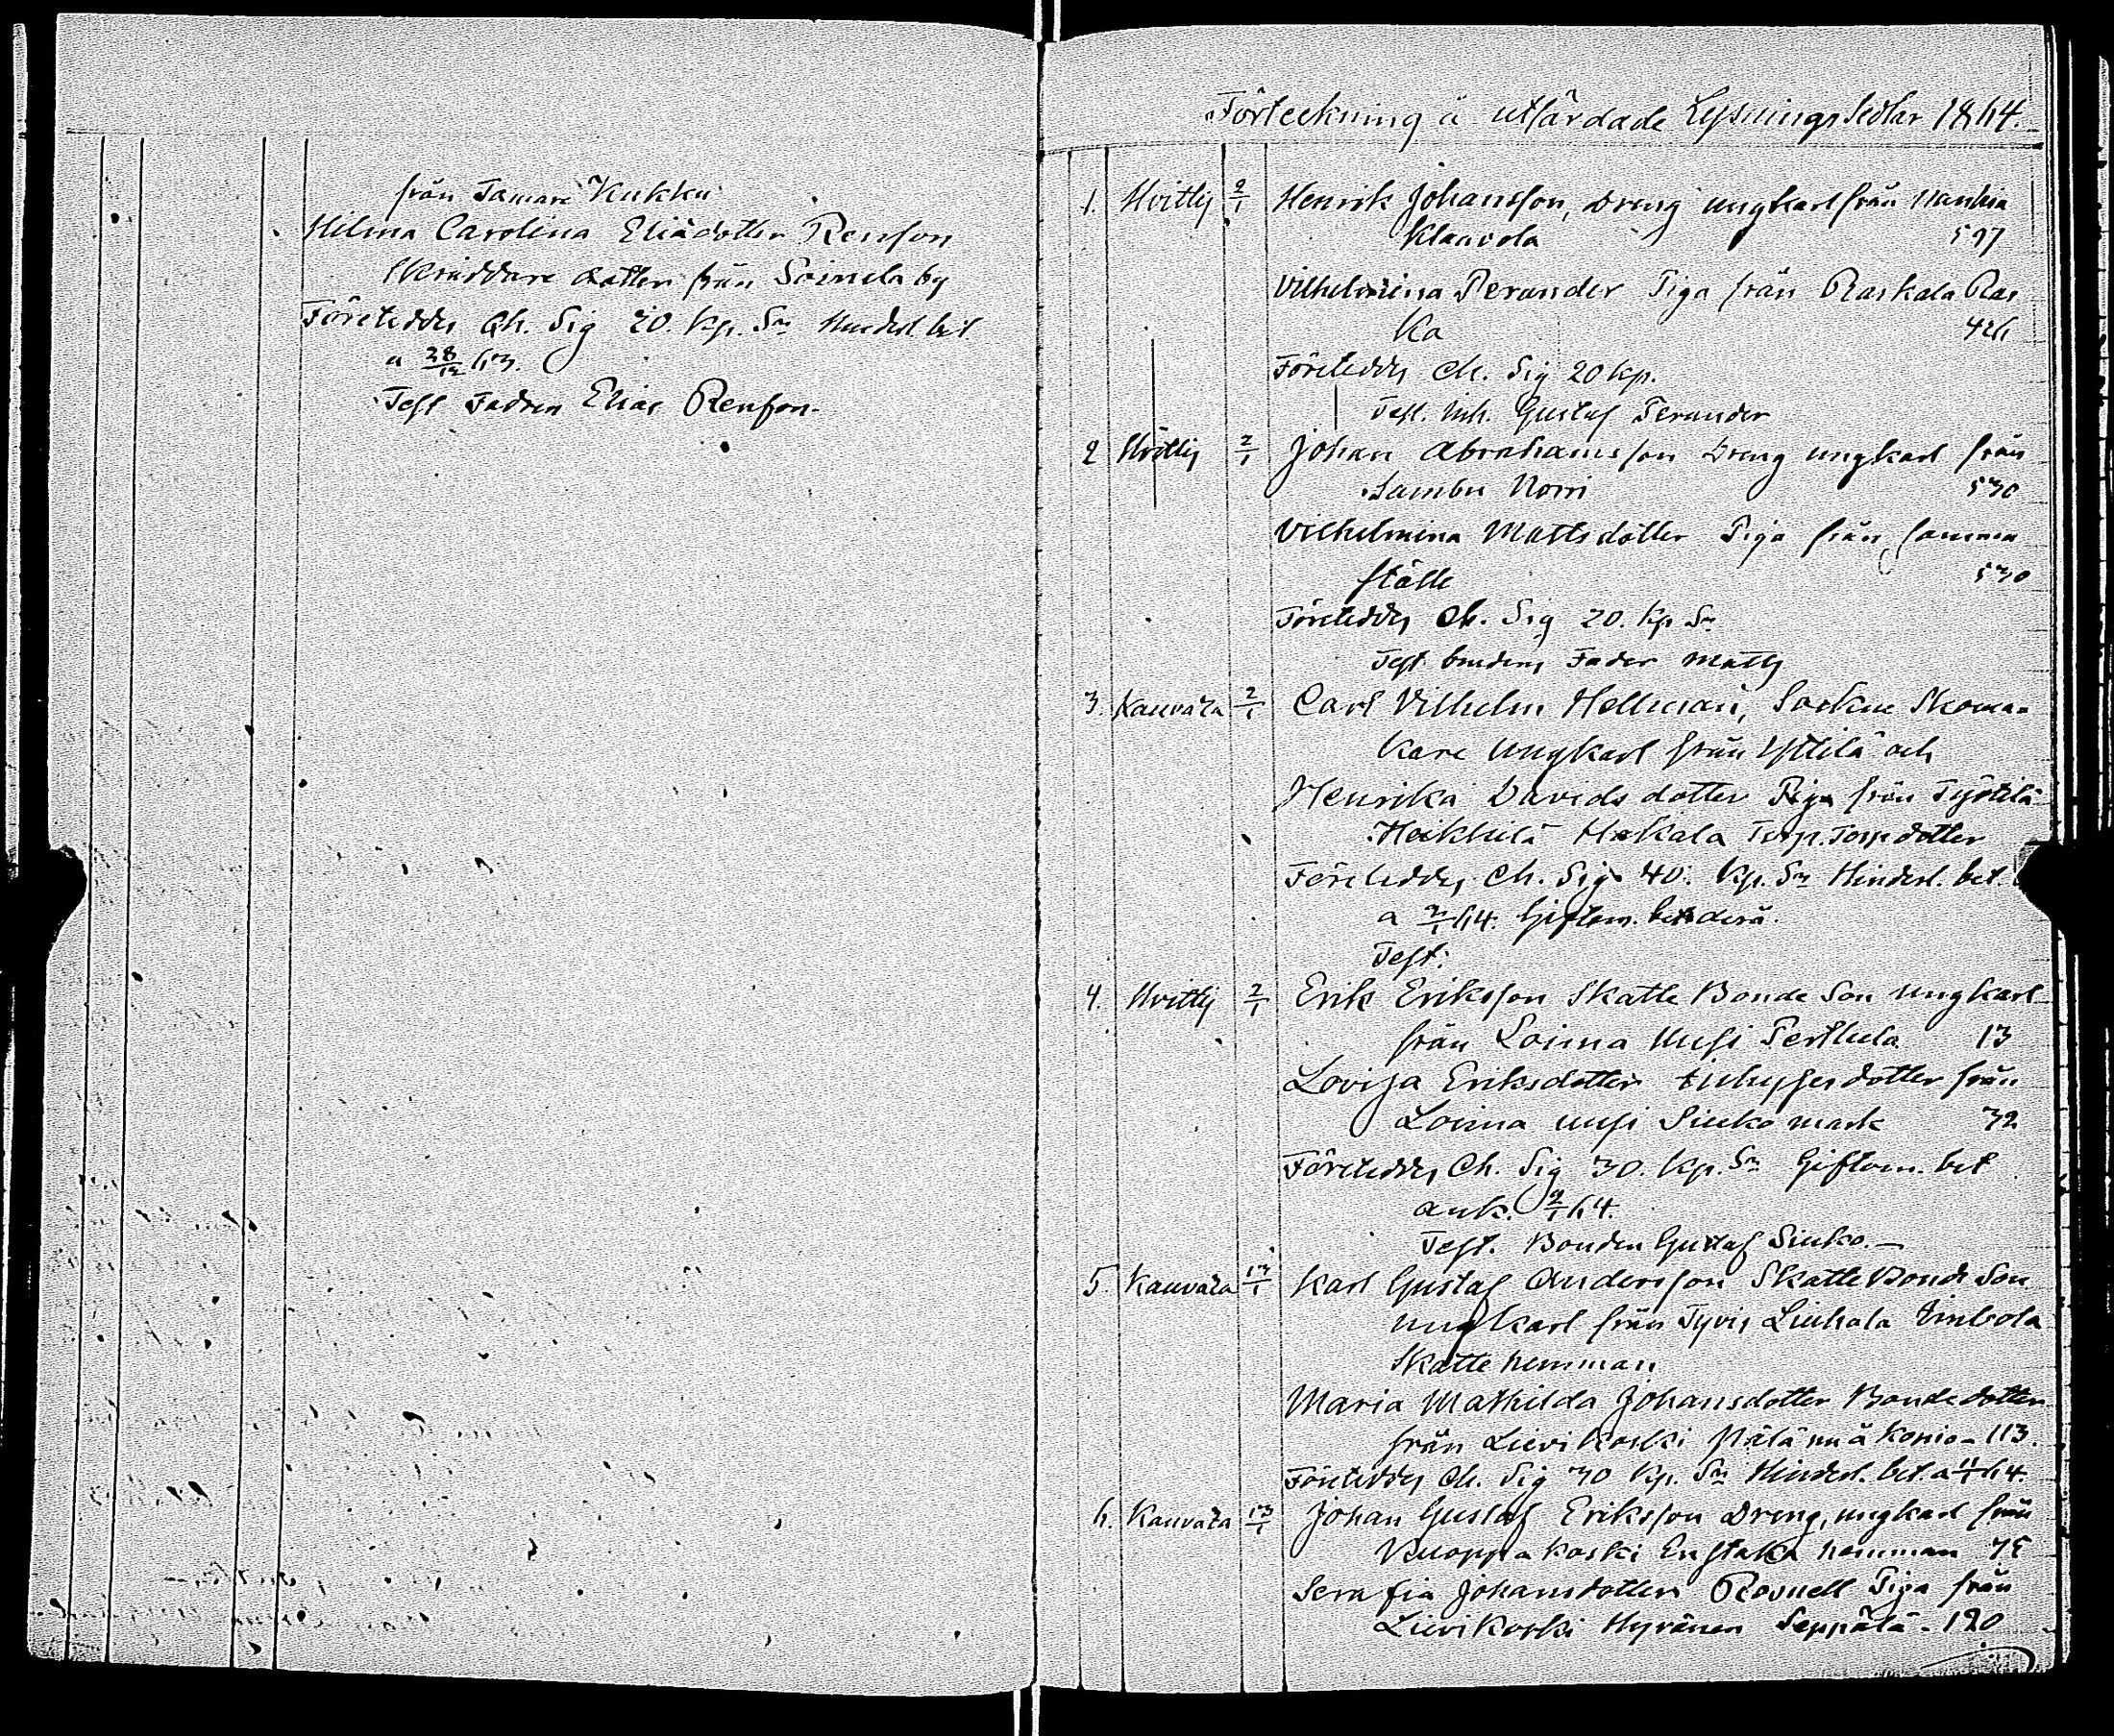 från Tamare Kukku
Hilma Carolina Eliædotter Renfors
Skräddare dotter från Soinila by
Företeddes Ch. Sig 20. Kp. Sr Hinderl. bet.
a 28/12 63.
Test Fadren Elias Renfors.
Förteckning å utfärdade Lysnings Sedlar 1864.
1. Hvittis 2/1 Henrik Johansson, Dreng ungkarl från Manhia
Klaavola 597
Vilhelmina Perander Piga från Raskala Ras
ka 426
Företeddes Ch. Sig 20 kp.
Test. Inh. Gustaf Perander
2 Hvittis 2/1 Johan Abrahamsson Dreng ungkarl från
Sambu Norri 530
Vilhelmina Mattsdotter Piga från samma
ställe 530
Företeddes Ch. Sig 20. Kp Sr
Test brudens Fader Matts
3. Kauvatsa 2/1 Carl Vilhelm Hellman, Sockne Skoma-
kare Ungkarl från Yttilä och
Henrika Davidsdotter Piga från Työtilä
Heikkilä Hakala Torp. Torpdotter
Företeddes Ch. Sig 40. Kp. Sr Hinderl. bet.
a 2/1 64. Giftom. bet derå.
Test:
4. Hvittis 2/1 Erik Eriksson Skatte Bonde Son ungkarl
från Loima Uusi Perthula 13
Lovisa Eriksdotter Inhyses dotter från
Loima Uusi Siuko mark 32
Företeddes Ch. Sig 30. Kp. Sr Giftom. bet
ank. 2/1 64.
Test. Bonden Gustaf Siuko.
5. Kauvatsa 13/1 Karl Gustaf Andersson Skatte Bonde Son
ungkarl från Tyvis Liuhala Simbola
Skatte hemman
Maria Mathilda Johansdotter Bonde dotter
från Lievikoski Pätämä Konio - 113.
Företeddes Ch. Sig 30 Kp. Sr Hinderl. bet. a 11/1 64.
6. Kauvatsa 13/1 Johan Gustaf Eriksson Dreng, ungkarl från
Kuoppakoski Enstaka hemman 75
Serafia Johansdotter Rosnell Piga från
Lievikoski Hyvänen Seppälä - 120